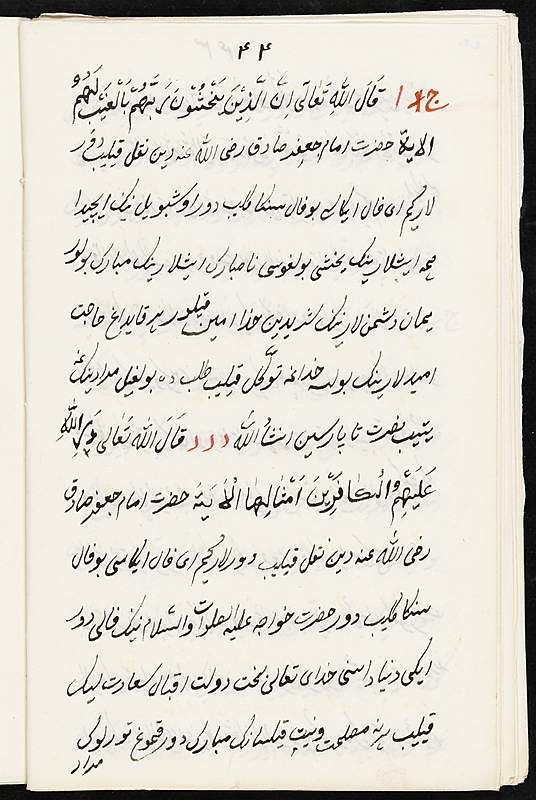 ۴۴
ج ۱ قَالَ اللهُ تَعَالَى اِنَّ الَّذِيْنَ يَخْشَوْنَ رَبَّهُمْ بِالْغَيْبِ لَهُمْ
الاية حضرت امام جعفر صادق رضى الله عنه دين نقل قيليب دور
لاركيم اى فال ايكاسى بوفال سنكا كليب دور اوشبويل نينك ايچيدا
همه ايشلارينك يخشى بولغوسى نامبارك ايشلارينك مبارك بولور
يمان دشمن لارنينك شريدين خدا امين قيلور هر قايداغ حاجت
اميدلارينك بولسه خداغه توكّل قيليب طلب ده بولغيل مرادينكغه
يتيب نصرت تاپارسين انشأ الله ددد قَالَ اللهُ تَعَالَى دَمَّرَ اللهُ
عَلَيْهِمْ وَالْكَافِرِيْنَ اَمْثَالُهَا الْاٰيَةْ حضرت امام جعفر صادق
رضى الله عنه دين نقل قيليب دورلاركيم اى فال ايكاسى بوفال
سنكا كليب دور حضرت خواجه عليه الصلوات والسّلام نينك فالى دور
ايكى دنيادا سنى خداى تعالى بخت دولت اقبال سعادت ليك
قيليب هرنه مصلحت ونيت قيلسانك مبارك دور قموغ تورلوك
مراد